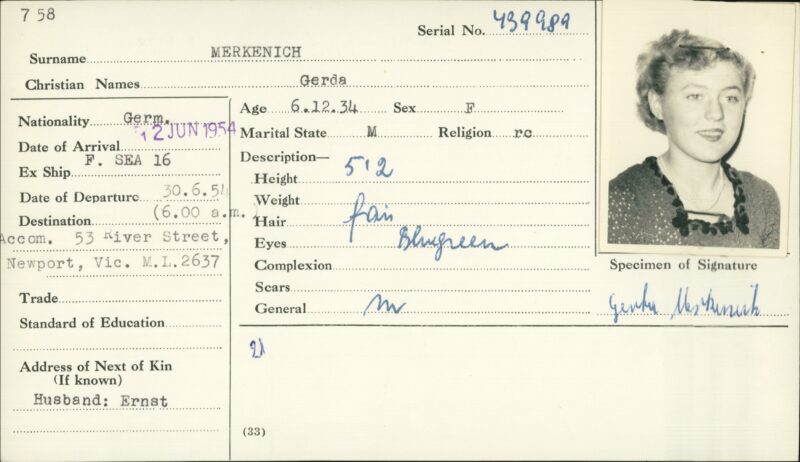 7 58
Serial No. 439989
Surname MERKENICH
Christian Names Gerda
Nationality Germ.
Date of Arrival 12 JUN 1954
Ex Ship F. SEA 16
Date of Departure 30.6.54
Destination (6.00 a.m.)
Accom. 53 River Street,
Newport, Vic. M.L.2637
Trade
Standard of Education
Address of Next of Kin
(If known)
Husband: Ernst
Age 6.12.34 Sex F
Marital State M Religion rc
Description—
Height 5'2
Weight
Hair fair
Eyes Blugreen
Complexion
Scars
General
21
(33)
Specimen of Signature
Gerda Merkenich